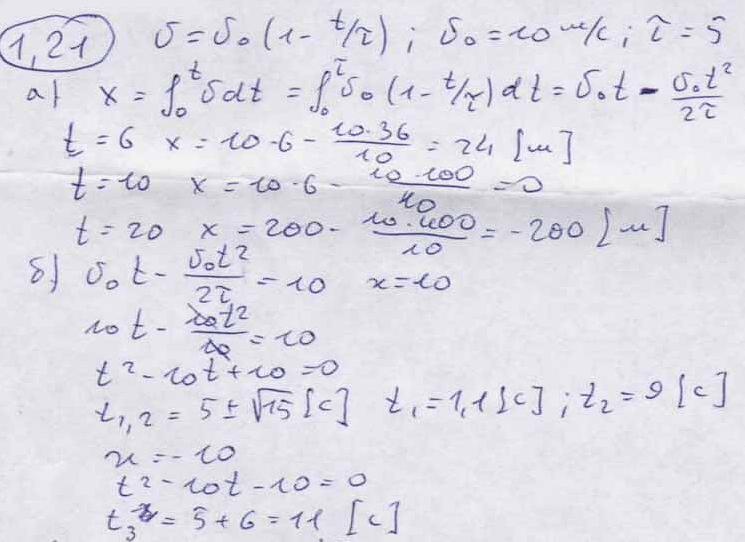 1,21 v = v₀ (1 - t/τ) ; v₀ = 10 м/с ; τ = 5
а) x = ∫₀ᵗ v dt = ∫₀ᵗ v₀ (1 - t/τ) dt = v₀t - v₀t²/2τ
t = 6 x = 10·6 - 10·36/10 = 24 [м]
t = 10 x = 10·6 - 10·100/10 = 0
t = 20 x = 200 - 10·400/10 = -200 [м]
б) v₀t - v₀t²/2τ = 10 x = 10
10t - 10t²/10 = 10
t² - 10t + 10 = 0
t₁,₂ = 5 ± √15 [с] t₁ = 1,1 [с] ; t₂ = 9 [с]
x = -10
t² - 10t - 10 = 0
t₃ = 5 + 6 = 11 [с]